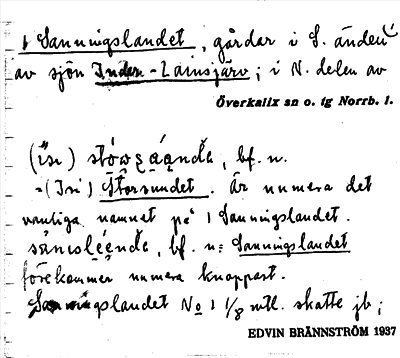 1 Sanningslandet, gårdar i S. änden
av sjön Inder-Lainsjärv; i N. delen av
Överkalix sn o. tg Norrb. l.
(īsɩ) , bf. n.
=(Isi) Storsundet. Är numera det
vanliga namnet på 1 Sanningslandet.
, bf. n: Sanningslandet
förekommer numera knappast.
Sanningslandet No 1 1/8 mtl. skatte jb;
EDVIN BRÄNNSTRÖM 1937